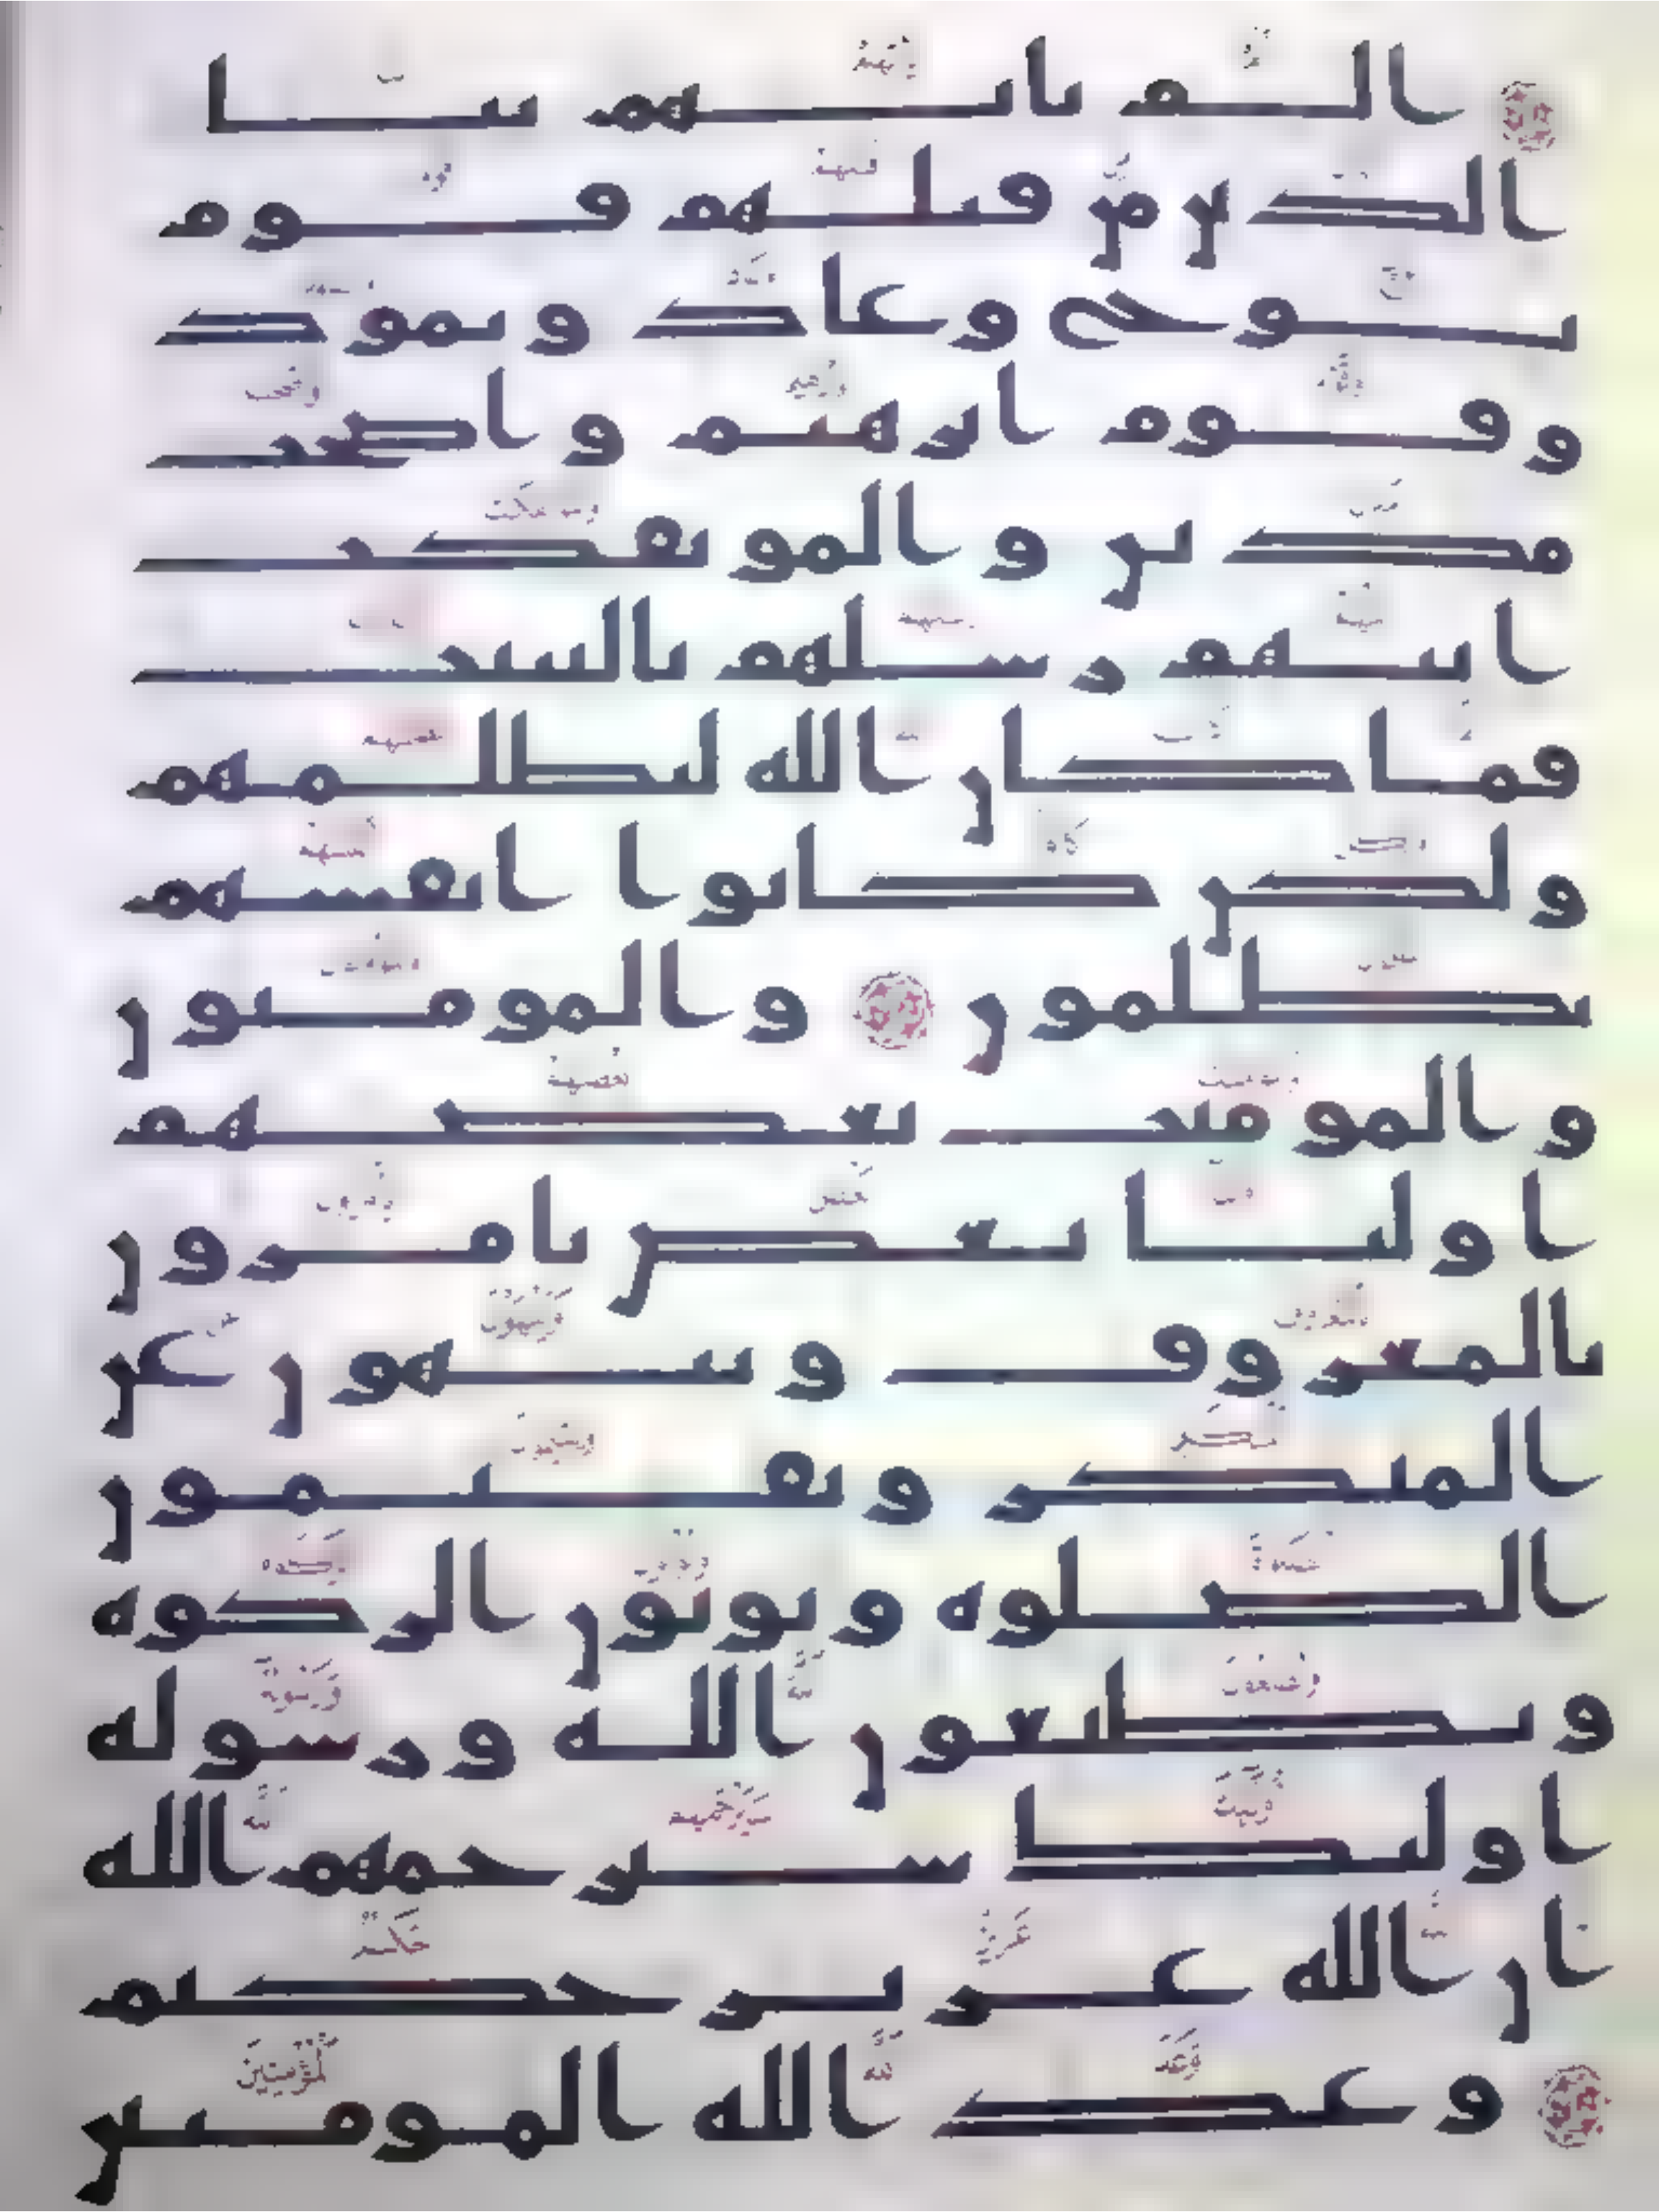 الم ياتهم نبا
الذين من قبلهم قوم
نوح وعاد وثمود
وقوم ابرهيم واصحب
مدين والموتفكت
اتتهم رسلهم بالبينت
فما كان الله ليظلمهم
ولكن كانوا انفسهم
يظلمون والمومنون
والمومنت بعضهم
اوليا بعض يامرون
بالمعروف وينهون عن
المنكر ويقيمون
الصلوه ويوتون الزكوه
ويطيعون الله ورسوله
اوليك سيرحمهم الله
ان الله عزيز حكيم
وعد الله المومنين